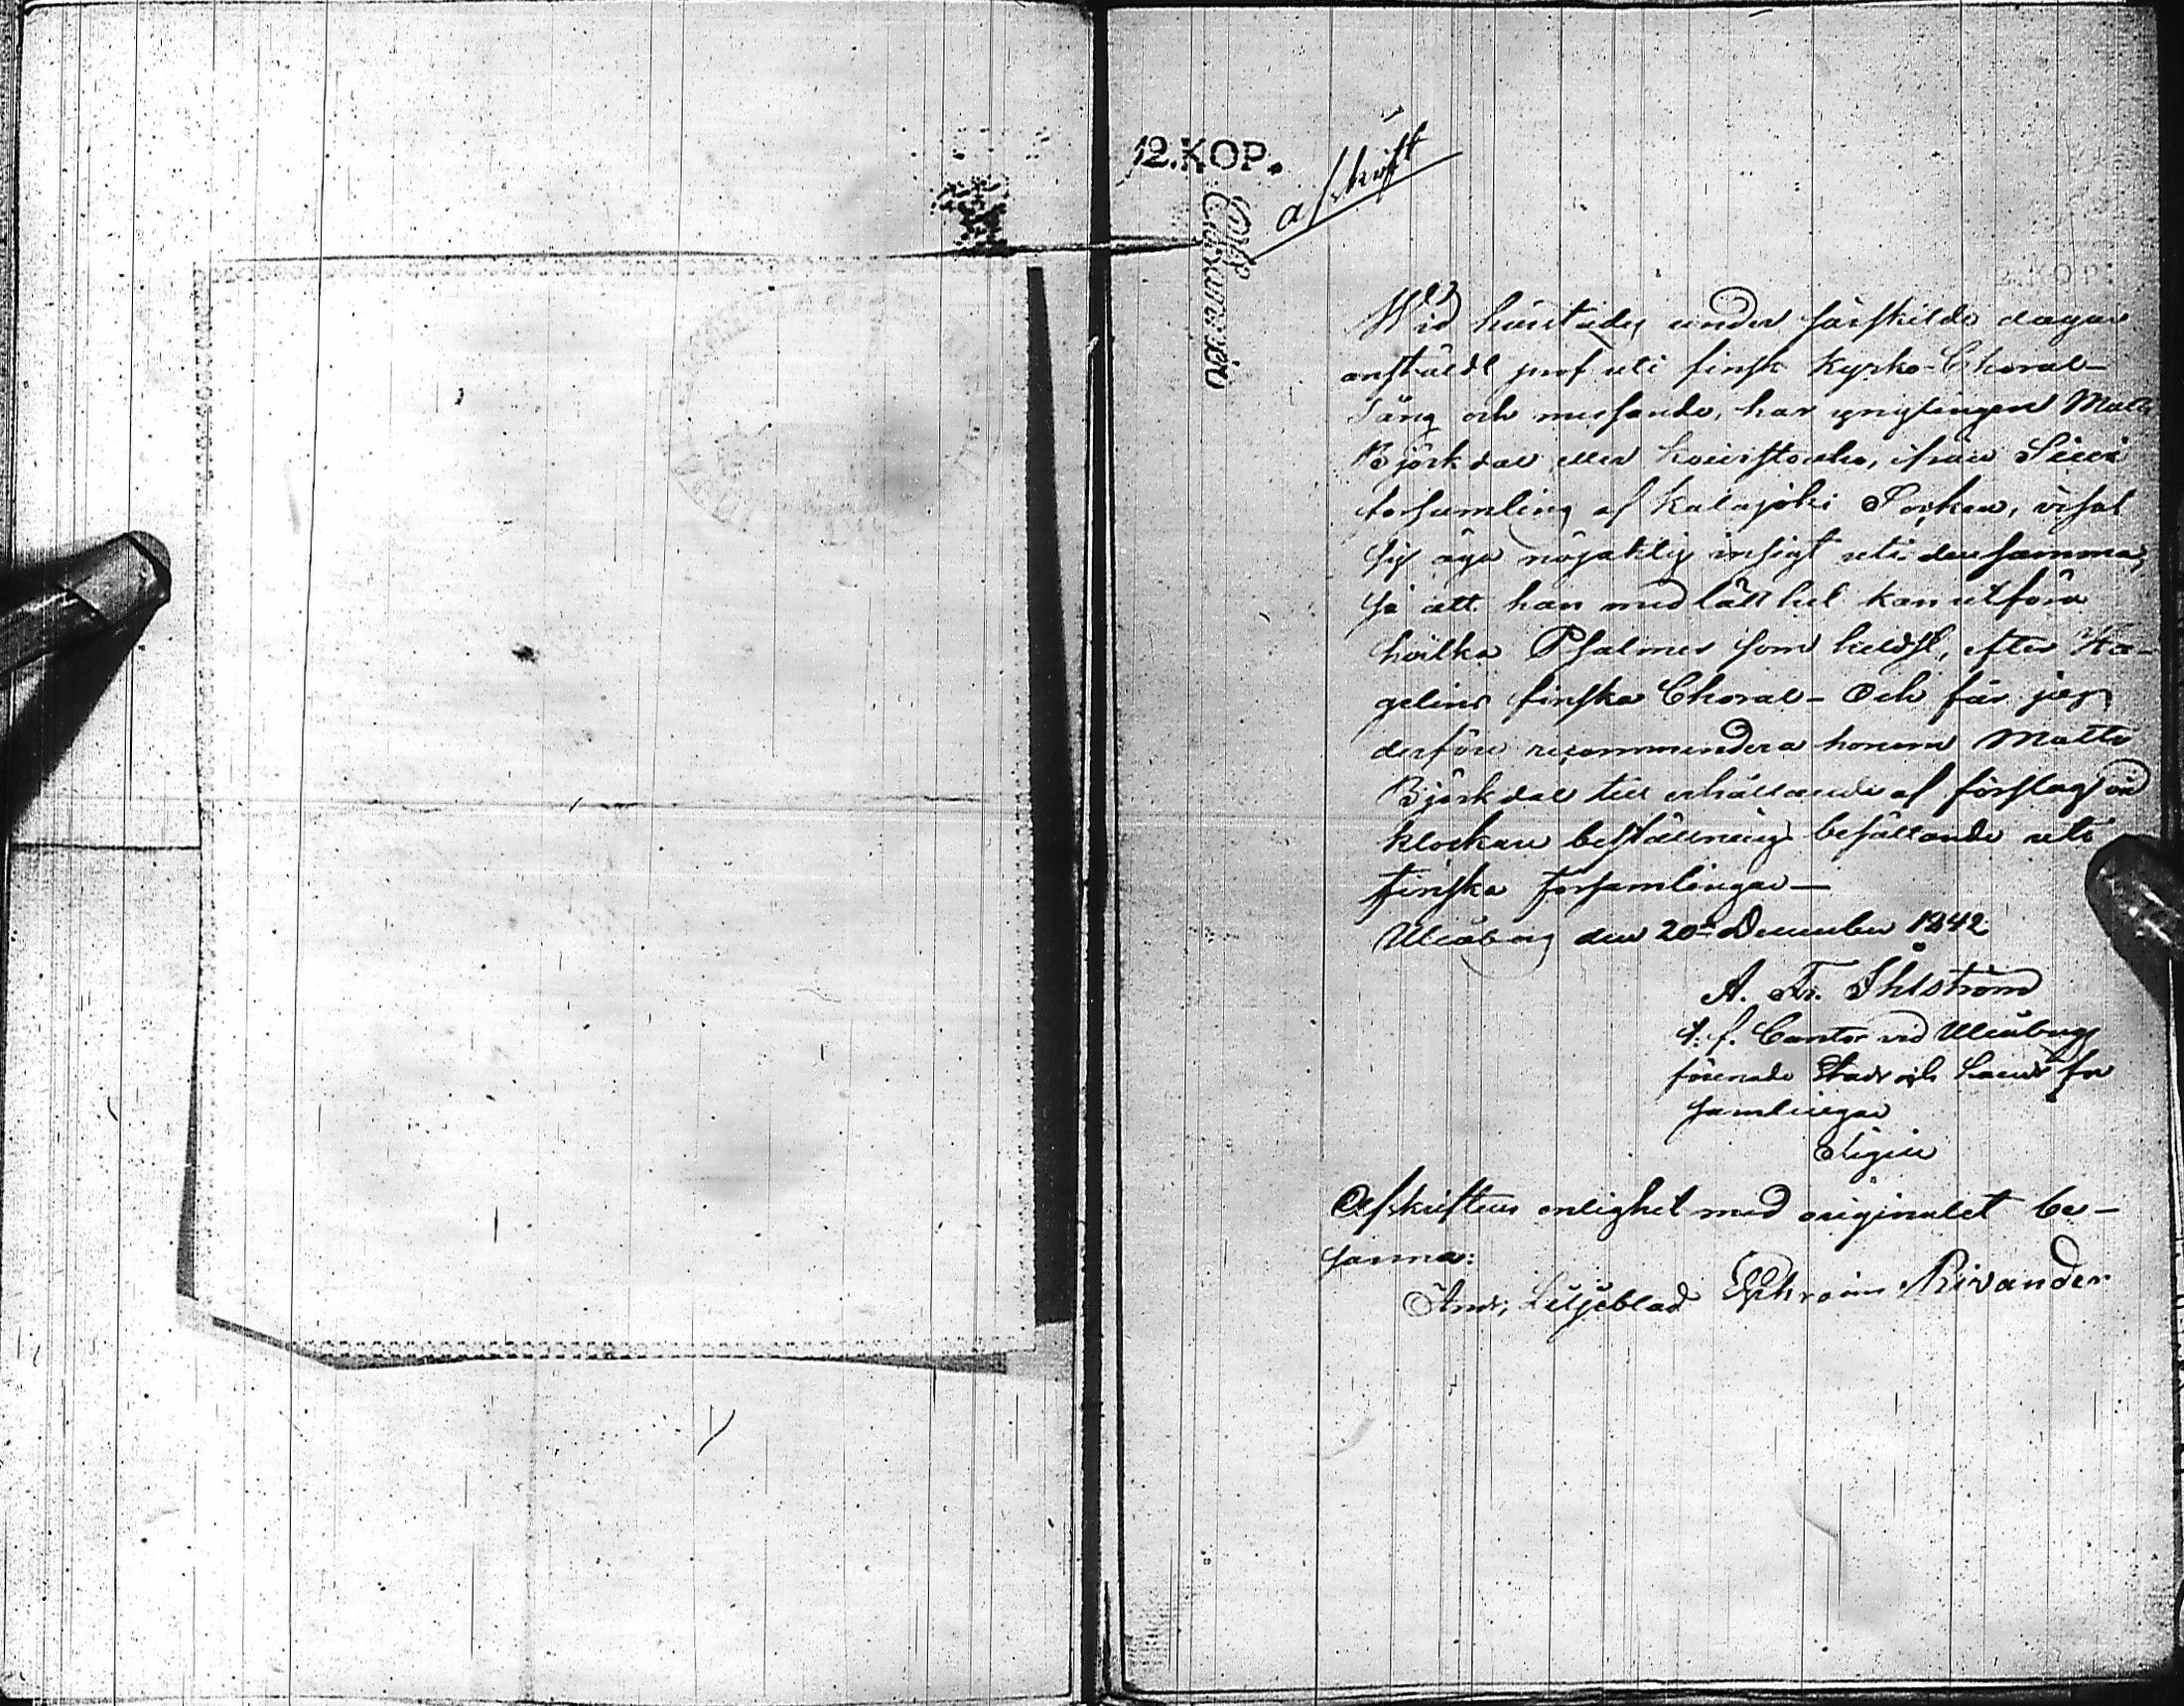 12.KOP.
afskrift
Wid härstädes under särskilde dagar
anstäldt prof uti finsk Kyrko-Choral-
Sång och messande, har ynglingen Matts
Björkdal eller, ifrån Sievi
församling af Kalajoki Socken, visat
sig äga nöjaktig insigt uti densamma,
så att han med lätthet kan utföra
hvilka Psalmer som heldst, efter Ha-
gelins finska Choral - Och får jag
derföre recommendera honom Matts
Björkdal till erhållande af förslag vid
klockare beställnings besättande uti
finska församlingar—
Uleåborg den 20de December 1842.
A. Fr. Åhlström
t. f. Cantor vid Uleåborgs
förenade Stads och Lands för
samlingar
Afskriftens enlighet med originalet be-
sanna:
And. Liljeblad Ephraim Rivander